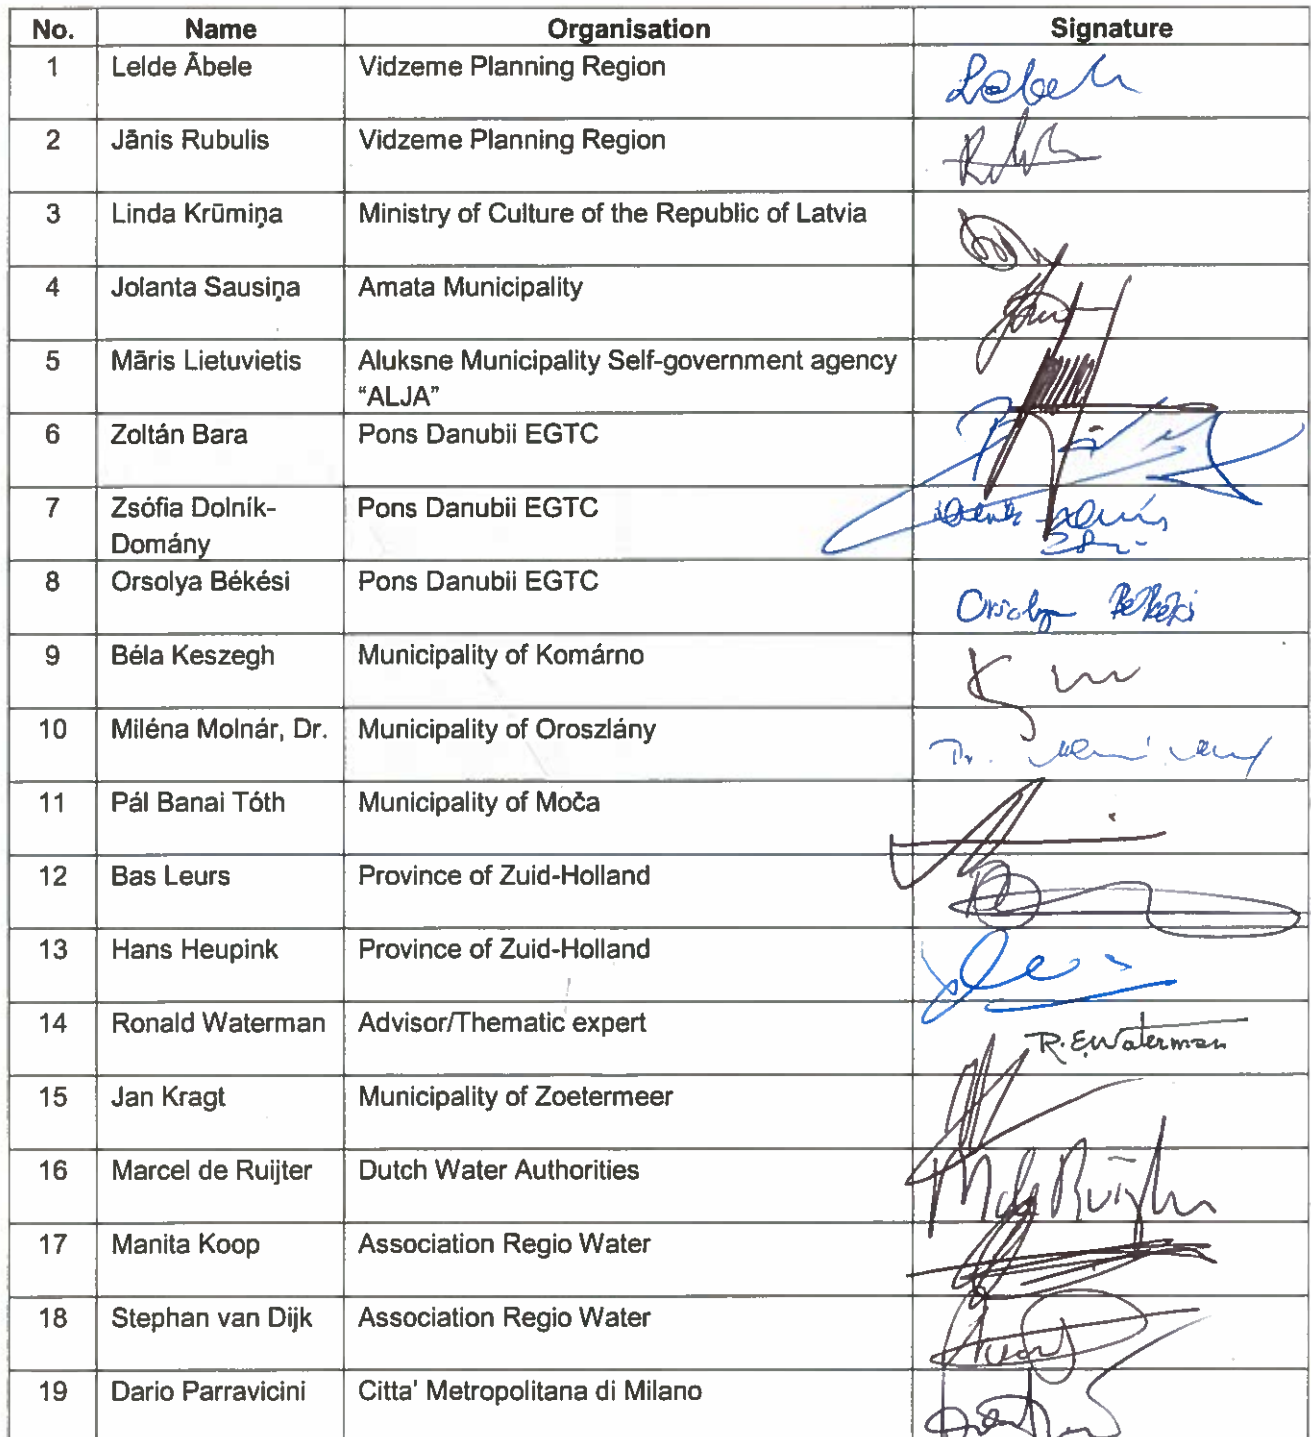 No. Name Organisation Signature
1 Lelde Ābele Vidzeme Planning Region
2 Jānis Rubulis Vidzeme Planning Region
3 Linda Krūmiņa Ministry of Culture of the Republic of Latvia
4 Jolanta Sausiņa Amata Municipality
5 Māris Lietuvietis Aluksne Municipality Self-government agency
"ALJA"
6 Zoltán Bara Pons Danubii EGTC
7 Zsófia Dolník- Pons Danubii EGTC
Domány
8 Orsolya Békési Pons Danubii EGTC Orsolya Békési
9 Béla Keszegh Municipality of Komárno
10 Miléna Molnár, Dr. Municipality of Oroszlány Dr.
11 Pál Banai Tóth Municipality of Moča
12 Bas Leurs Province of Zuid-Holland
13 Hans Heupink Province of Zuid-Holland
14 Ronald Waterman Advisor/Thematic expert R.E.Waterman
15 Jan Kragt Municipality of Zoetermeer
16 Marcel de Ruijter Dutch Water Authorities M de Ruijter
17 Manita Koop Association Regio Water
18 Stephan van Dijk Association Regio Water
19 Dario Parravicini Citta' Metropolitana di Milano